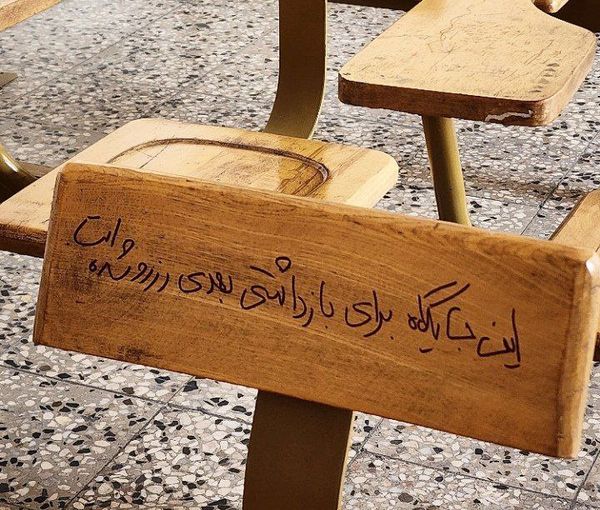 این جایگاه برای بازداشتی بعدی رزرو شده است